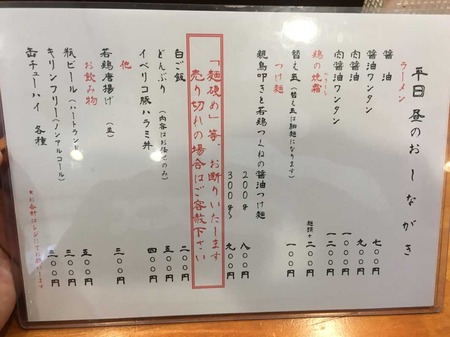 平日 昼のおしながき
ラーメン
醤油 七〇〇円
醤油ワンタン 九〇〇円
肉醤油 一〇〇〇円
肉醤油ワンタン 一二〇〇円
鶏の炊霜
替え玉(替え玉は細麺になります) 一〇〇円
つけ麺
親鳥叩きと若鶏つくねの醤油つけ麺
200g 八〇〇円
300g 九〇〇円
「麺硬め」等、お断りいたします
売り切れの場合はご容赦下さい
白ご飯 二〇〇円
どんぶり(内容はお任せのみ) 五〇〇円
イベリコ豚ハラミ丼 四〇〇円
他
若鶏唐揚げ 三〇〇円
お飲み物
瓶ビール(ハートランド) 五〇〇円
キリンフリー(ノンアルコール) 三〇〇円
缶チューハイ 各種